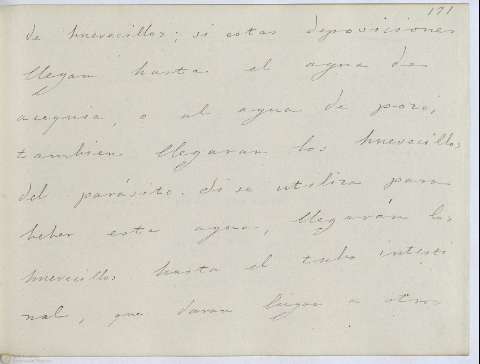 171
de huevecillos; si estas deposiciones
llegan hasta el agua de
acequia, o al agua de pozo,
tambien llegaran los huevecillos
del parásito. Si se utiliza para
beber esta agua, llegarán los
huevecillos hasta el tubo intesti
nal, que daran lugar a otros